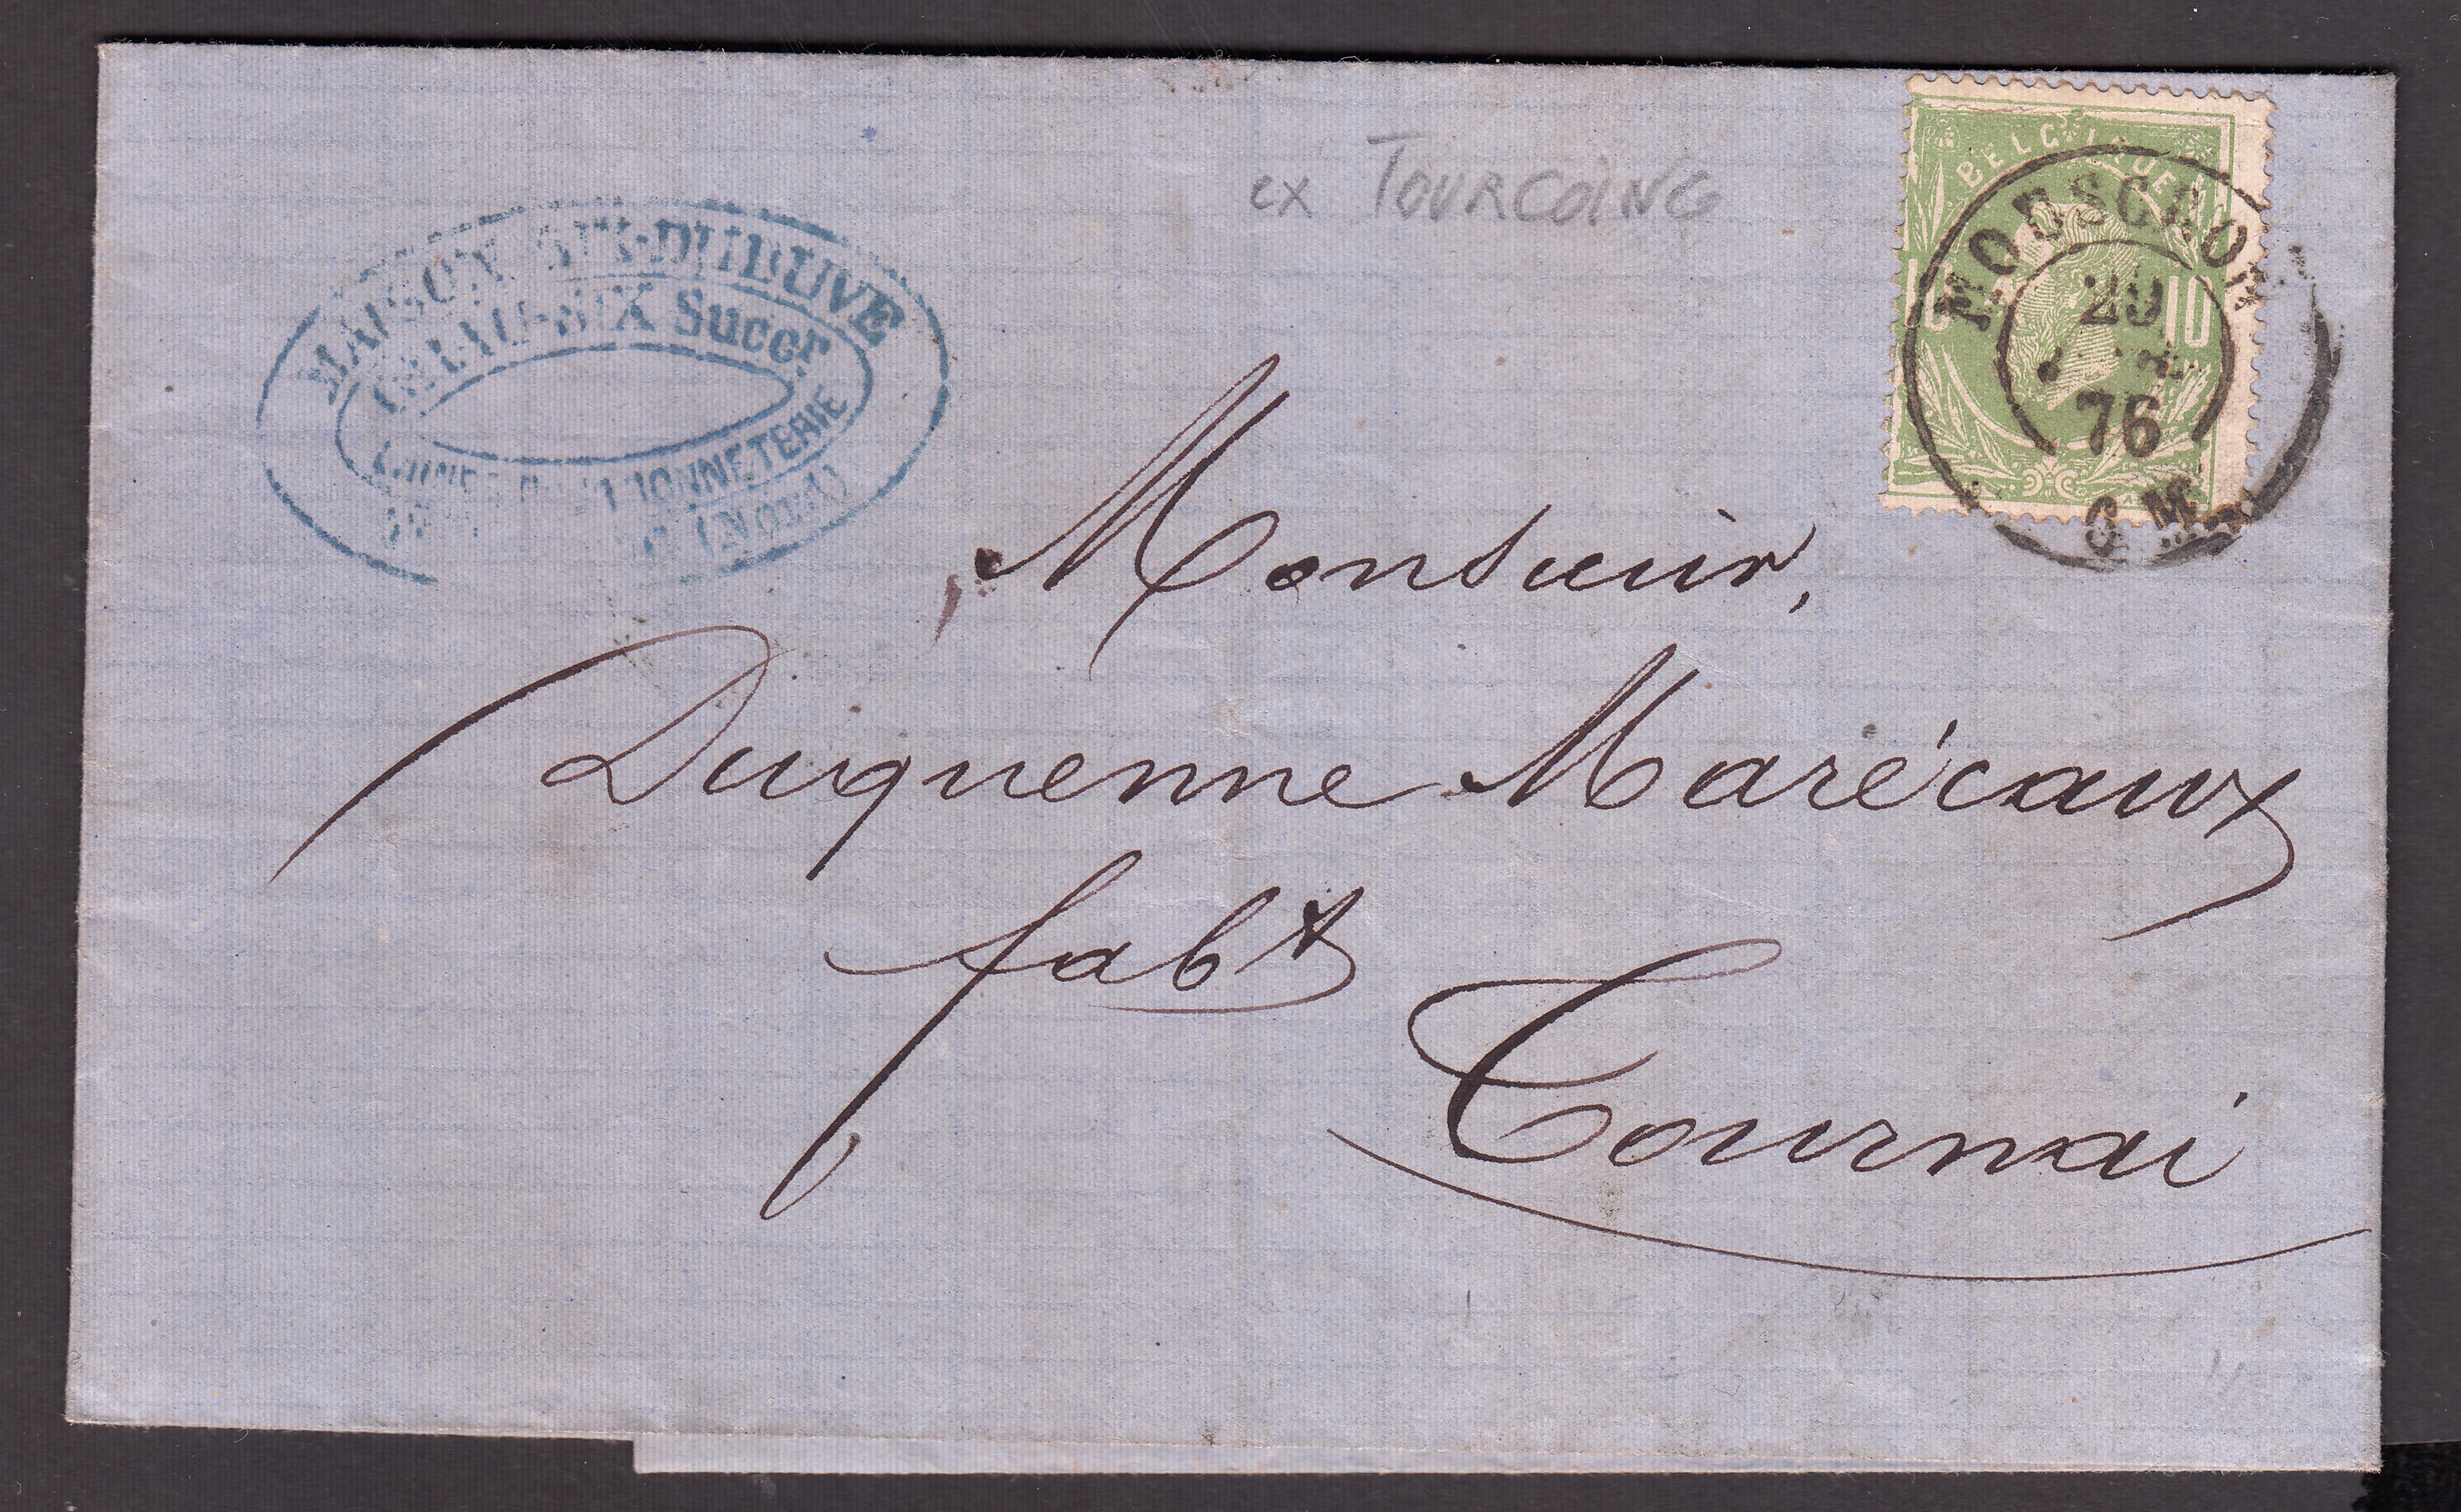 ex TOURCOING
BELGIQUE
10
MOUSCRON
29
76
6 M
MAISON SIX-DUDUVE
SIX Succr
BONNETERIE
(Nord)
Monsieur,
Duquenne Marécaux
fabt
Tournai